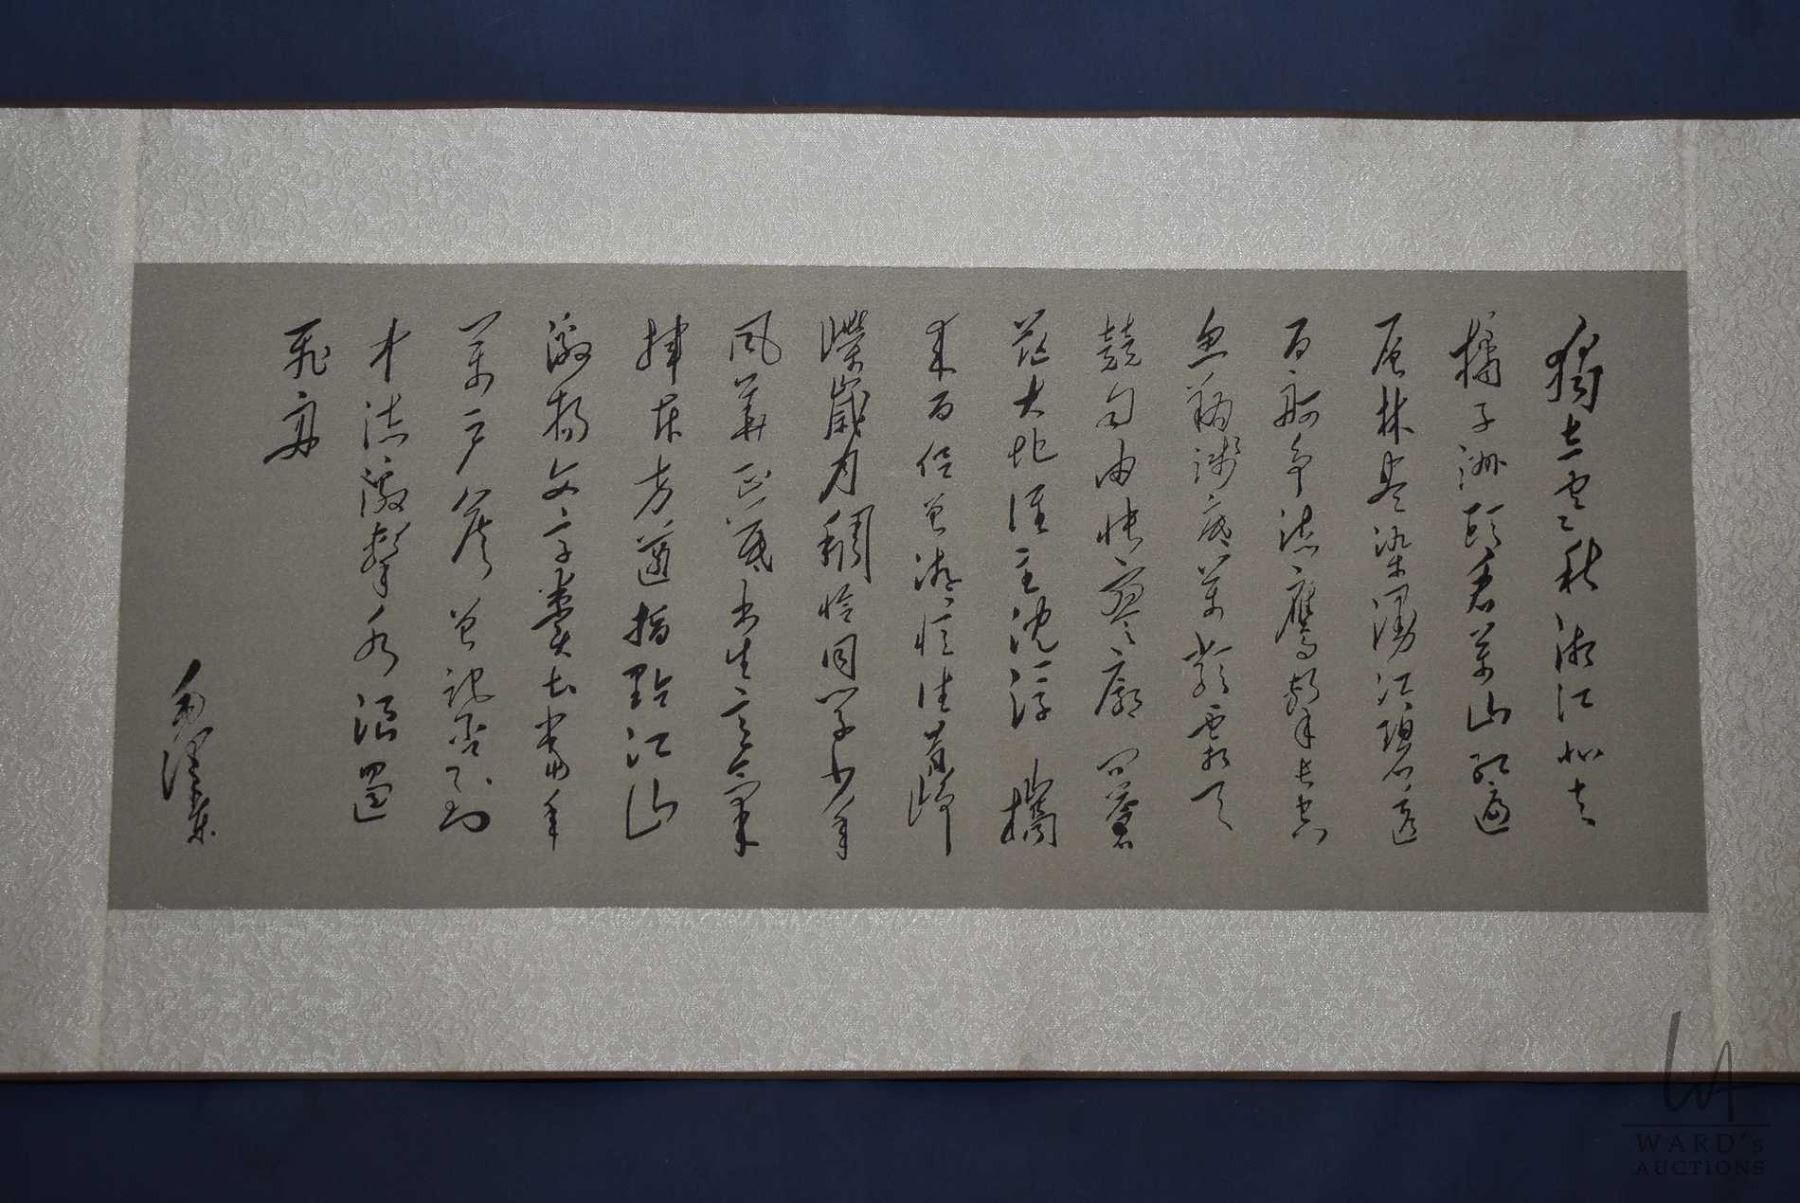 獨立寒秋湘江北去
橘子洲頭看萬山紅遍
層林盡染漫江碧透
百舸爭流鷹擊長空
魚翔淺底萬類霜天
競自由悵寥廓問蒼
茫大地誰主沈浮 攜
來百侶曾游憶往昔崢
嶸歲月稠恰同學少年
風華正茂書生意氣
揮斥方遒指點江山
激揚文字糞土當年
萬戶侯曾記否到
中流激擊水浪遏
飛舟
毛澤東
WARD's
AUCTIONS